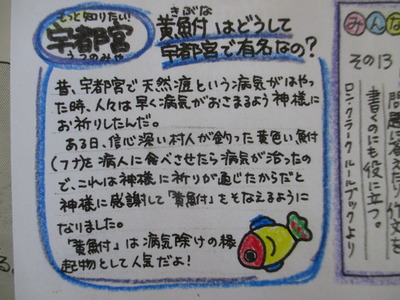 もっと知りたい!
宇都宮
うつのみや
きぶな
黄魚付はどうして
宇都宮で有名なの?
昔、宇都宮で天然痘という病気がはやっ
た時、人々は早く病気がおさまるよう神様に
お祈りしたんだ。
ある日、信心深い村人が釣った黄色い魚付
(フナ)を病人に食べさせたら病気が治ったの
で、これは神様に祈りが通じたからだと
神様に感謝して「黄魚付」をそなえるように
なりました。
「黄魚付」は病気除けの縁
起物として人気だよ!
みんな
その13
問題に答えたり作文を
書くのにも役に立つ。
ロン・クラーク ルールブックより
る。